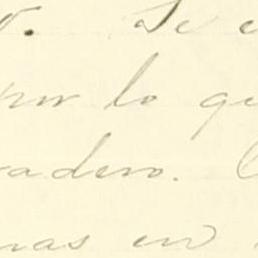 . Se e
por lo qu
radero. C
nas en